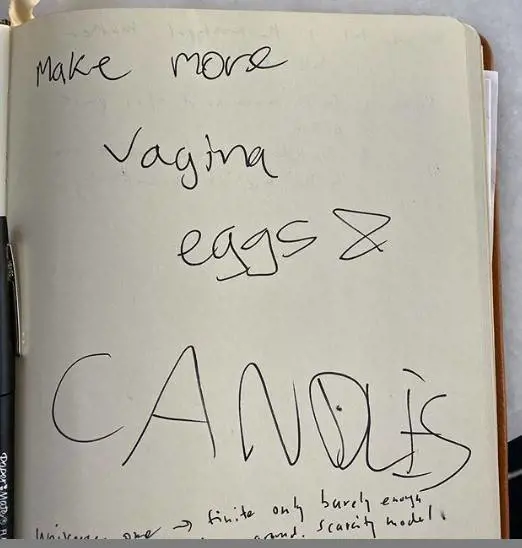 Make more
Vagina
eggs &
CANDLES
→ finite only barely enough
scarcity model.
PaperMate